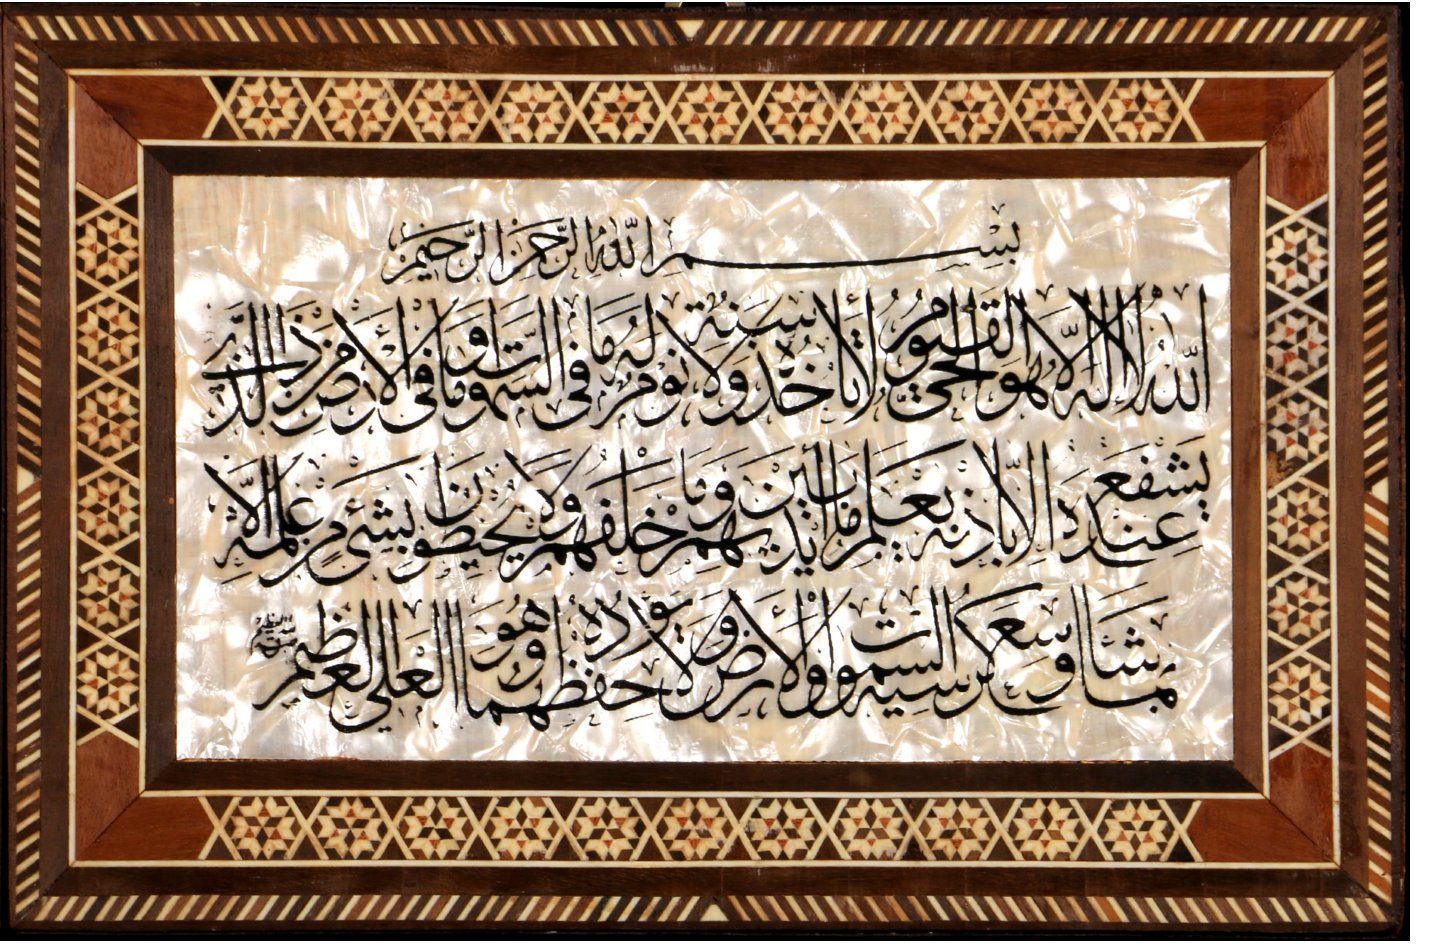 بسم الله الرحمن الرحيم
الله لا اله الا هو الحي القيوم لا تأخذه سنة ولا نوم له ما في السموات وما في الأرض من ذا الذي
يشفع عنده الا باذنه يعلم ما بين أيديهم وما خلفهم ولا يحيطون بشيء من علمه الا
بما شاء وسع كرسيه السموات والأرض ولا يؤده حفظهما وهو العلي العظيم